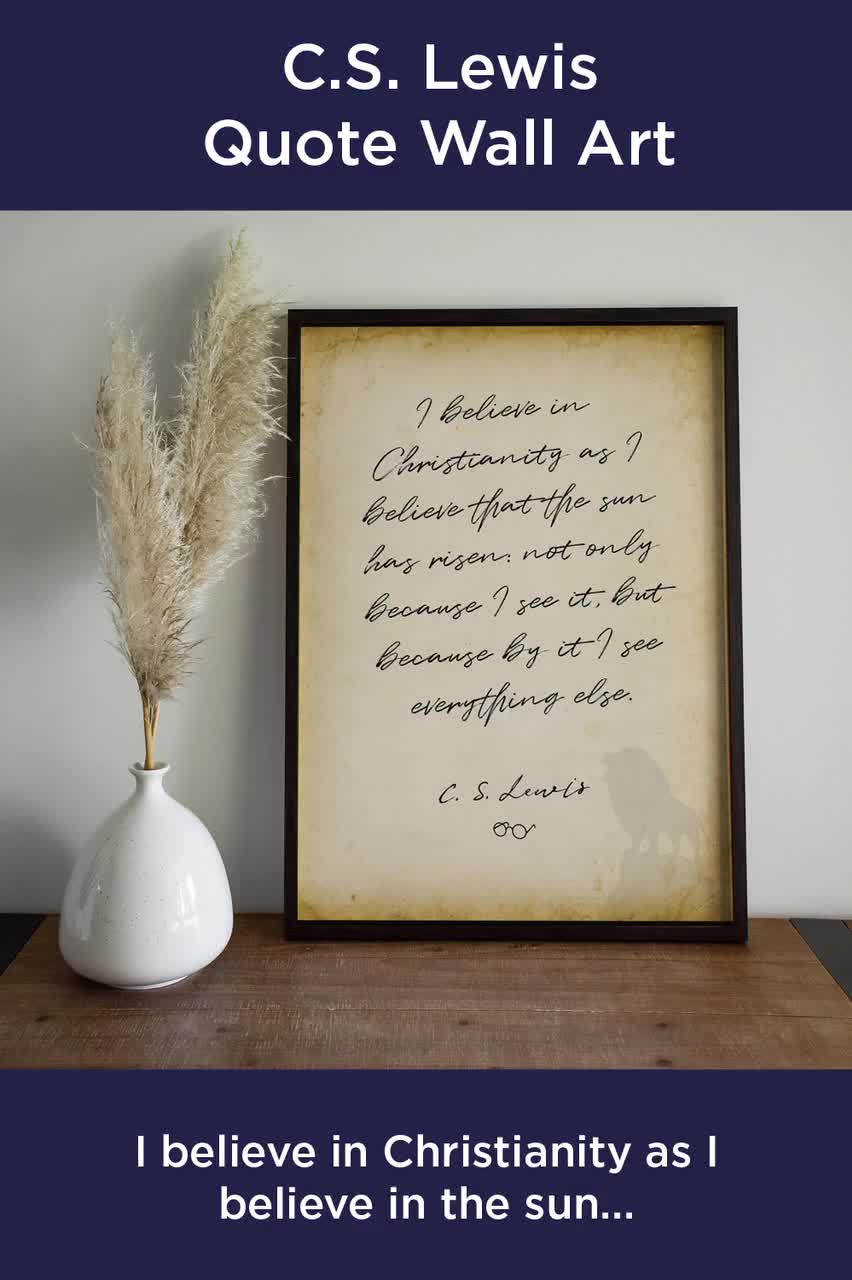 C.S. Lewis
Quote Wall Art
I believe in
Christianity as I
believe that the sun
has risen: not only
because I see it, but
because by it I see
everything else.
C. S. Lewis
I believe in Christianity as I
believe in the sun...